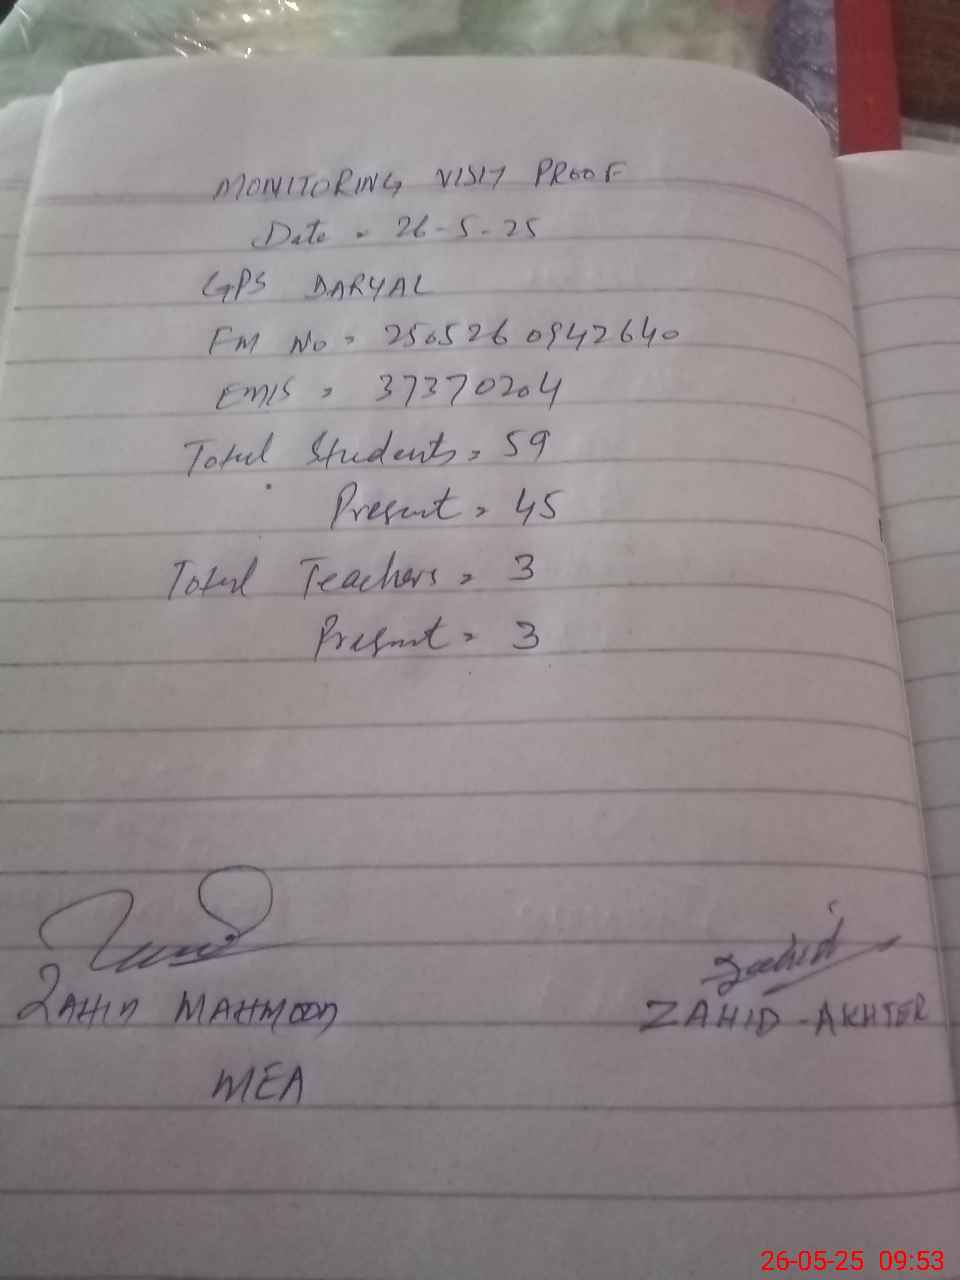 MONITORING VISIT PROOF
Date = 26-5-25
GPS DARYAL
FM No = 2505260942640
EMIS = 37370204
Total Students = 59
Present = 45
Total Teachers = 3
Present = 3
ZAHID MAHMOOD
MEA
Zahid
ZAHID - AKHTER
26-05-25 09:53